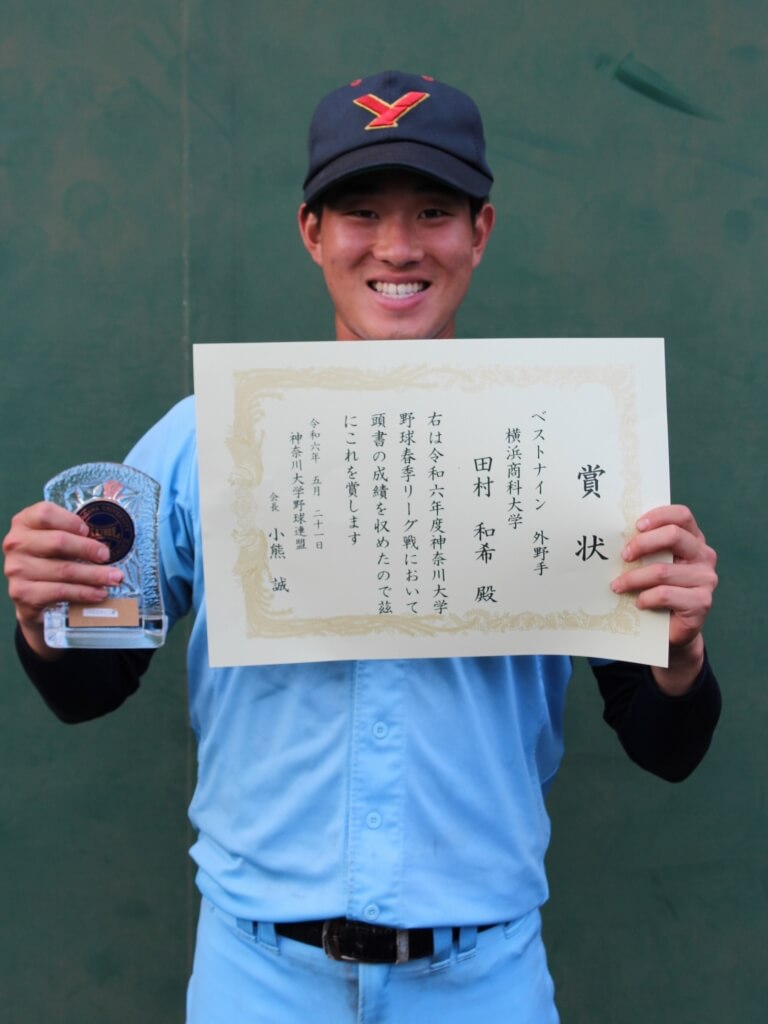 Y
賞状
ベストナイン 外野手
横浜商科大学
田村 和希 殿
右は令和六年度神奈川大学
野球春季リーグ戦において
頭書の成績を収めたので茲
にこれを賞します
令和六年 五月 二十一日
神奈川大学野球連盟
会長 小熊 誠